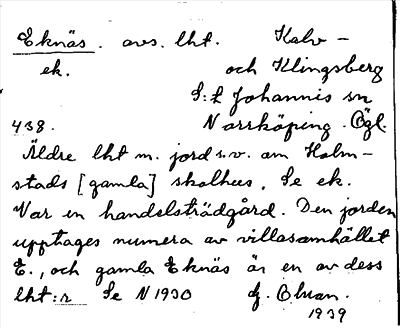 Eknäs. avs. lht. Kalv-
ek. och Klingsberg
S:t Johannis sn
438. Norrköping. Ögl.
Äldre lht m. jord s.v. om Holm-
stads [gamla] skolhus. Se ek.
Var en handelsträdgård. Den jorden
upptages numera av villasamhället
E., och gamla Eknäs är en av dess
lht:r Se N 1930
1939